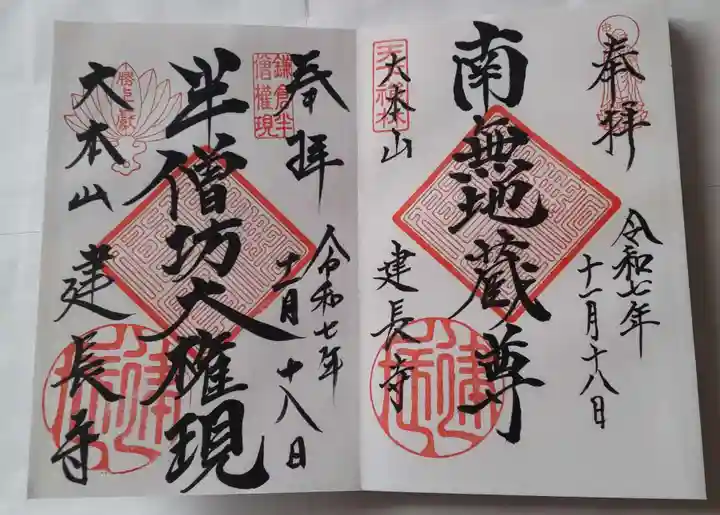 奉拝
令和七年
十一月十八日
南無地蔵尊
天下禅林
大本山
建長寺
奉拝
令和七年
十一月
十八日
鎌倉半
僧權現
半僧坊大権現
勝上嶽
大本山
建長寺